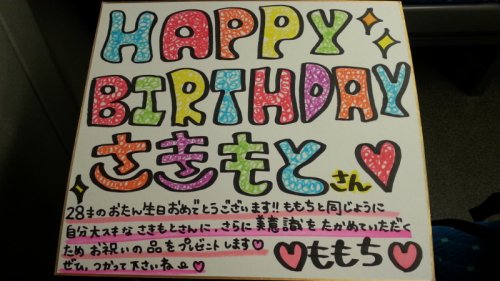 HAPPY
BIRTHDAY
さきもと
さん
28才のおたん生日おめでとうございます!! ももちと同じように
自分大スキな さきもとさんに、さらに美意識をたかめていただく
ため お祝いの品をプレゼントします♡
ぜひ、つかって下さいね
ももち